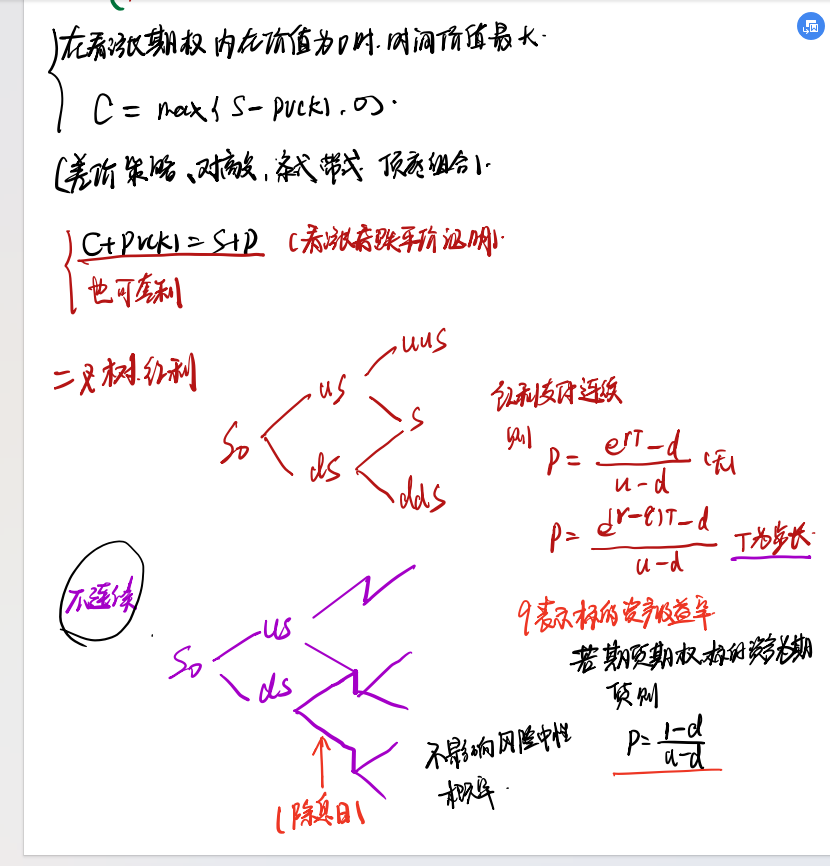 在看涨期权内在价值为0时.时间价值最大.
C = max{S-PV(K), 0}.
(差价策略、对敲, 条式带式 顶底组合).
C+PV(K)=S+P (看涨看跌平价证明).
也可套利
二叉树.红利
uus
us
S
S0
ds
dds
红利支付连续
则 P = \frac{e^{rT}-d}{u-d} (无)
P = \frac{e^{(r-q)T}-d}{u-d} T为步长.
q表示标的资产收益率
若期货期权,标的资产为期
货则
P = \frac{1-d}{u-d}
不连续
us
S0
ds
不影响风险中性
概率.
(除息日)